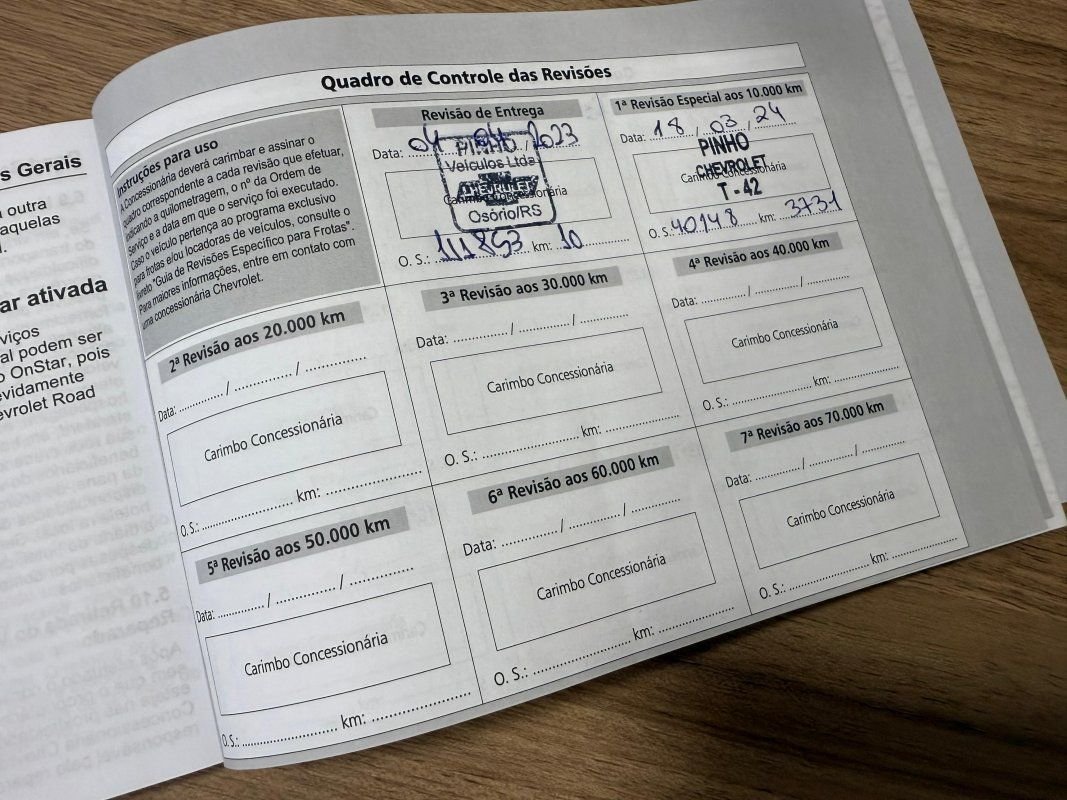 s Gerais
outra
aquelas
ar ativada
viços
al podem ser
o OnStar, pois
evidamente
evrolet Road
Quadro de Controle das Revisões
Instruções para uso
A Concessionária deverá carimbar e assinar o
quadro correspondente a cada revisão que efetuar,
indicando a quilometragem, o nº da Ordem de
Serviço e a data em que o serviço foi executado.
Caso o veículo pertença ao programa exclusivo
para frotas e/ou locadoras de veículos, consulte o
livreto "Guia de Revisões Específico para Frotas".
Para maiores informações, entre em contato com
uma concessionária Chevrolet.
Revisão de Entrega
Data: 04 / 04 / 2023
PINHO
Veículos Ltda
CHEVROLET
Osório/RS
O. S.: 111853 km: 10
1ª Revisão Especial aos 10.000 km
Data: 18 / 03 / 24
PINHO
CHEVROLET
Carimbo Concessionária
T - 42
O. S. 40148 km: 3731
2ª Revisão aos 20.000 km
Data: ............ / ............... / ...............
Carimbo Concessionária
O. S.: ........................ km: ........................
3ª Revisão aos 30.000 km
Data: ............ / ............... / ...............
Carimbo Concessionária
O. S.: ........................ km: ........................
4ª Revisão aos 40.000 km
Data: ............ / ............... / ...............
Carimbo Concessionária
O. S.: ........................ km: ........................
5ª Revisão aos 50.000 km
Data: ............ / ............... / ...............
Carimbo Concessionária
O. S.: ........................ km: ........................
6ª Revisão aos 60.000 km
Data: ............ / ............... / ...............
Carimbo Concessionária
O. S.: ........................ km: ........................
7ª Revisão aos 70.000 km
Data: ............ / ............... / ...............
Carimbo Concessionária
O. S.: ........................ km: ........................